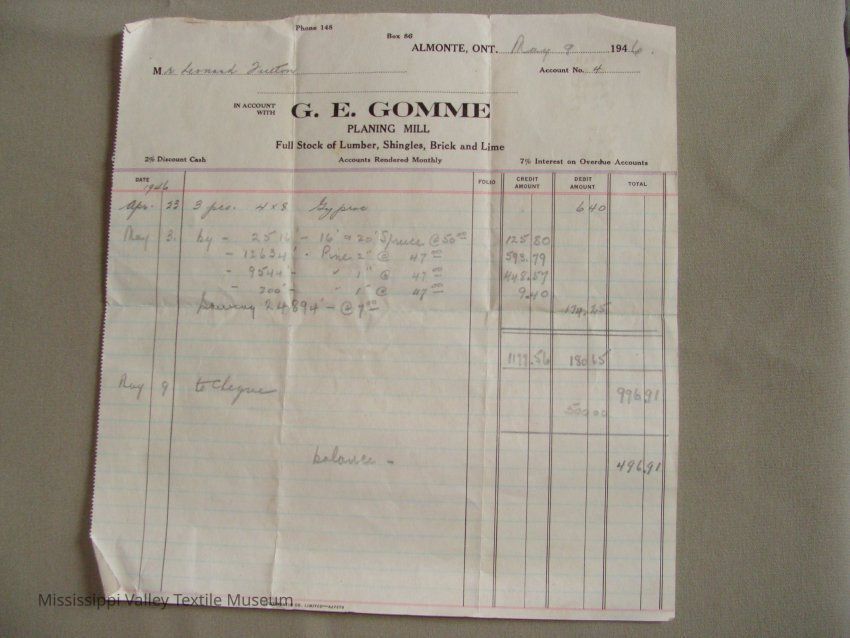 Phone 148
Box 86
ALMONTE, ONT. May 9 1946.
Mr Leonard Fulton
Account No. 4
IN ACCOUNT WITH
G. E. GOMME
PLANING MILL
Full Stock of Lumber, Shingles, Brick and Lime
2% Discount Cash Accounts Rendered Monthly 7% Interest on Overdue Accounts
DATE FOLIO CREDIT AMOUNT DEBIT AMOUNT TOTAL
1946
Apr. 23 3 pcs. 4 x 8 Gyproc 6 40
May 3. by - 2516 - 16' 20' Spruce @ 50 00 125.80
- 12634' - Pine 2" @ 47 00 593.79
- 9544' - " 1" @ 47 00 448.57
- 200' - " 1" @ 47 00 9.40
24894' - @ 7 00 174.25
1177.56 180.65
996.91
May 9 to Cheque 500.00
balance - 496.91
CO. LIMITED
Mississippi Valley Textile Museum